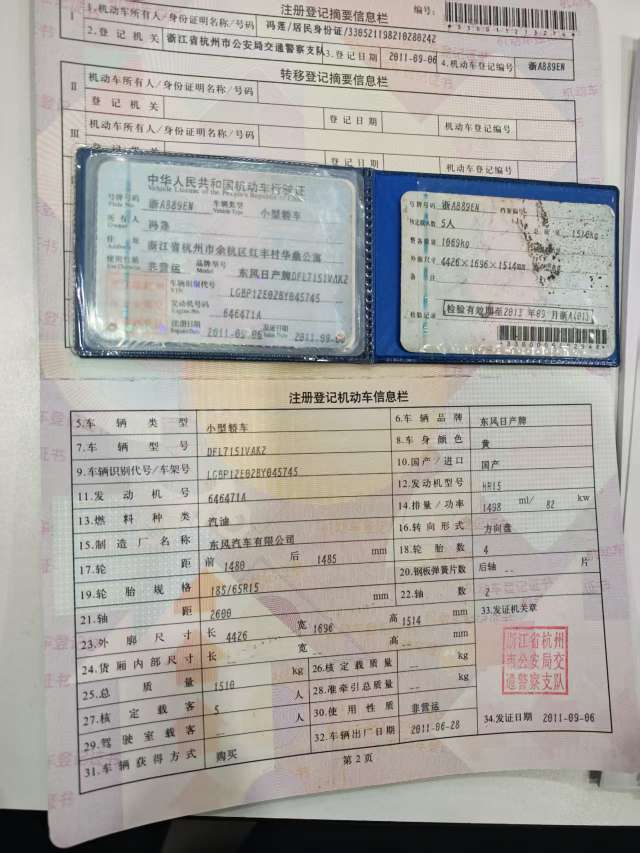 注册登记摘要信息栏
I 1.机动车所有人/身份证明名称/号码 冯莲/居民身份证/330521198210280242
2.登记机关 浙江省杭州市公安局交通警察支队 3.登记日期 2011-09-06 4.机动车登记编号 浙A889EN
转移登记摘要信息栏
II 机动车所有人/身份证明名称/号码
登记机关 登记日期 机动车登记编号
III 机动车所有人/身份证明名称/号码
登记机关 登记日期 机动车登记编号
中华人民共和国机动车行驶证
Vehicle License of the People's Republic of China
号牌号码 浙A889EN 车辆类型 小型轿车
Plate No. Vehicle Type
所有人 冯莲
Owner
住址 浙江省杭州市余杭区红丰村华鼎公寓
Address
使用性质 非营运 品牌型号 东风日产牌DFL7151VAK2
Use Character Model
车辆识别代号 LGBP12E02BY045745
VIN
发动机号码 646471A
Engine No.
注册日期 2011-09-06 发证日期 2011-09-06
Register Date Issue Date
号牌号码 浙A889EN 档案编号
核定载人数 5人 总质量 1510kg
整备质量 1069kg
外廓尺寸 4426×1696×1514mm
备注
检验记录 检验有效期至2013年09月浙A(01)
注册登记机动车信息栏
5.车辆类型 小型轿车 6.车辆品牌 东风日产牌
7.车辆型号 DFL7151VAK2 8.车身颜色 黄
9.车辆识别代号/车架号 LGBP12E02BY045745 10.国产/进口 国产
11.发动机号 646471A 12.发动机型号 HR15
13.燃料种类 汽油 14.排量/功率 1498 ml/ 82 kw
15.制造厂名称 东风汽车有限公司 16.转向形式 方向盘
17.轮距 前 1480 后 1485 mm 18.轮胎数 4
19.轮胎规格 185/65R15 20.钢板弹簧片数 后轴 -- 片
21.轴距 2600 mm 22.轴数 2
23.外廓尺寸 长 4426 宽 1696 高 1514 mm 33.发证机关章
24.货厢内部尺寸 长 -- 宽 -- 高 -- mm
浙江省杭州
市公安局交
通警察支队
25.总质量 1510 kg 26.核定载质量 -- kg
27.核定载客 5 人 28.准牵引总质量 -- kg
29.驾驶室载客 -- 人 30.使用性质 非营运
31.车辆获得方式 购买 32.车辆出厂日期 2011-06-28 34.发证日期 2011-09-06
第2页